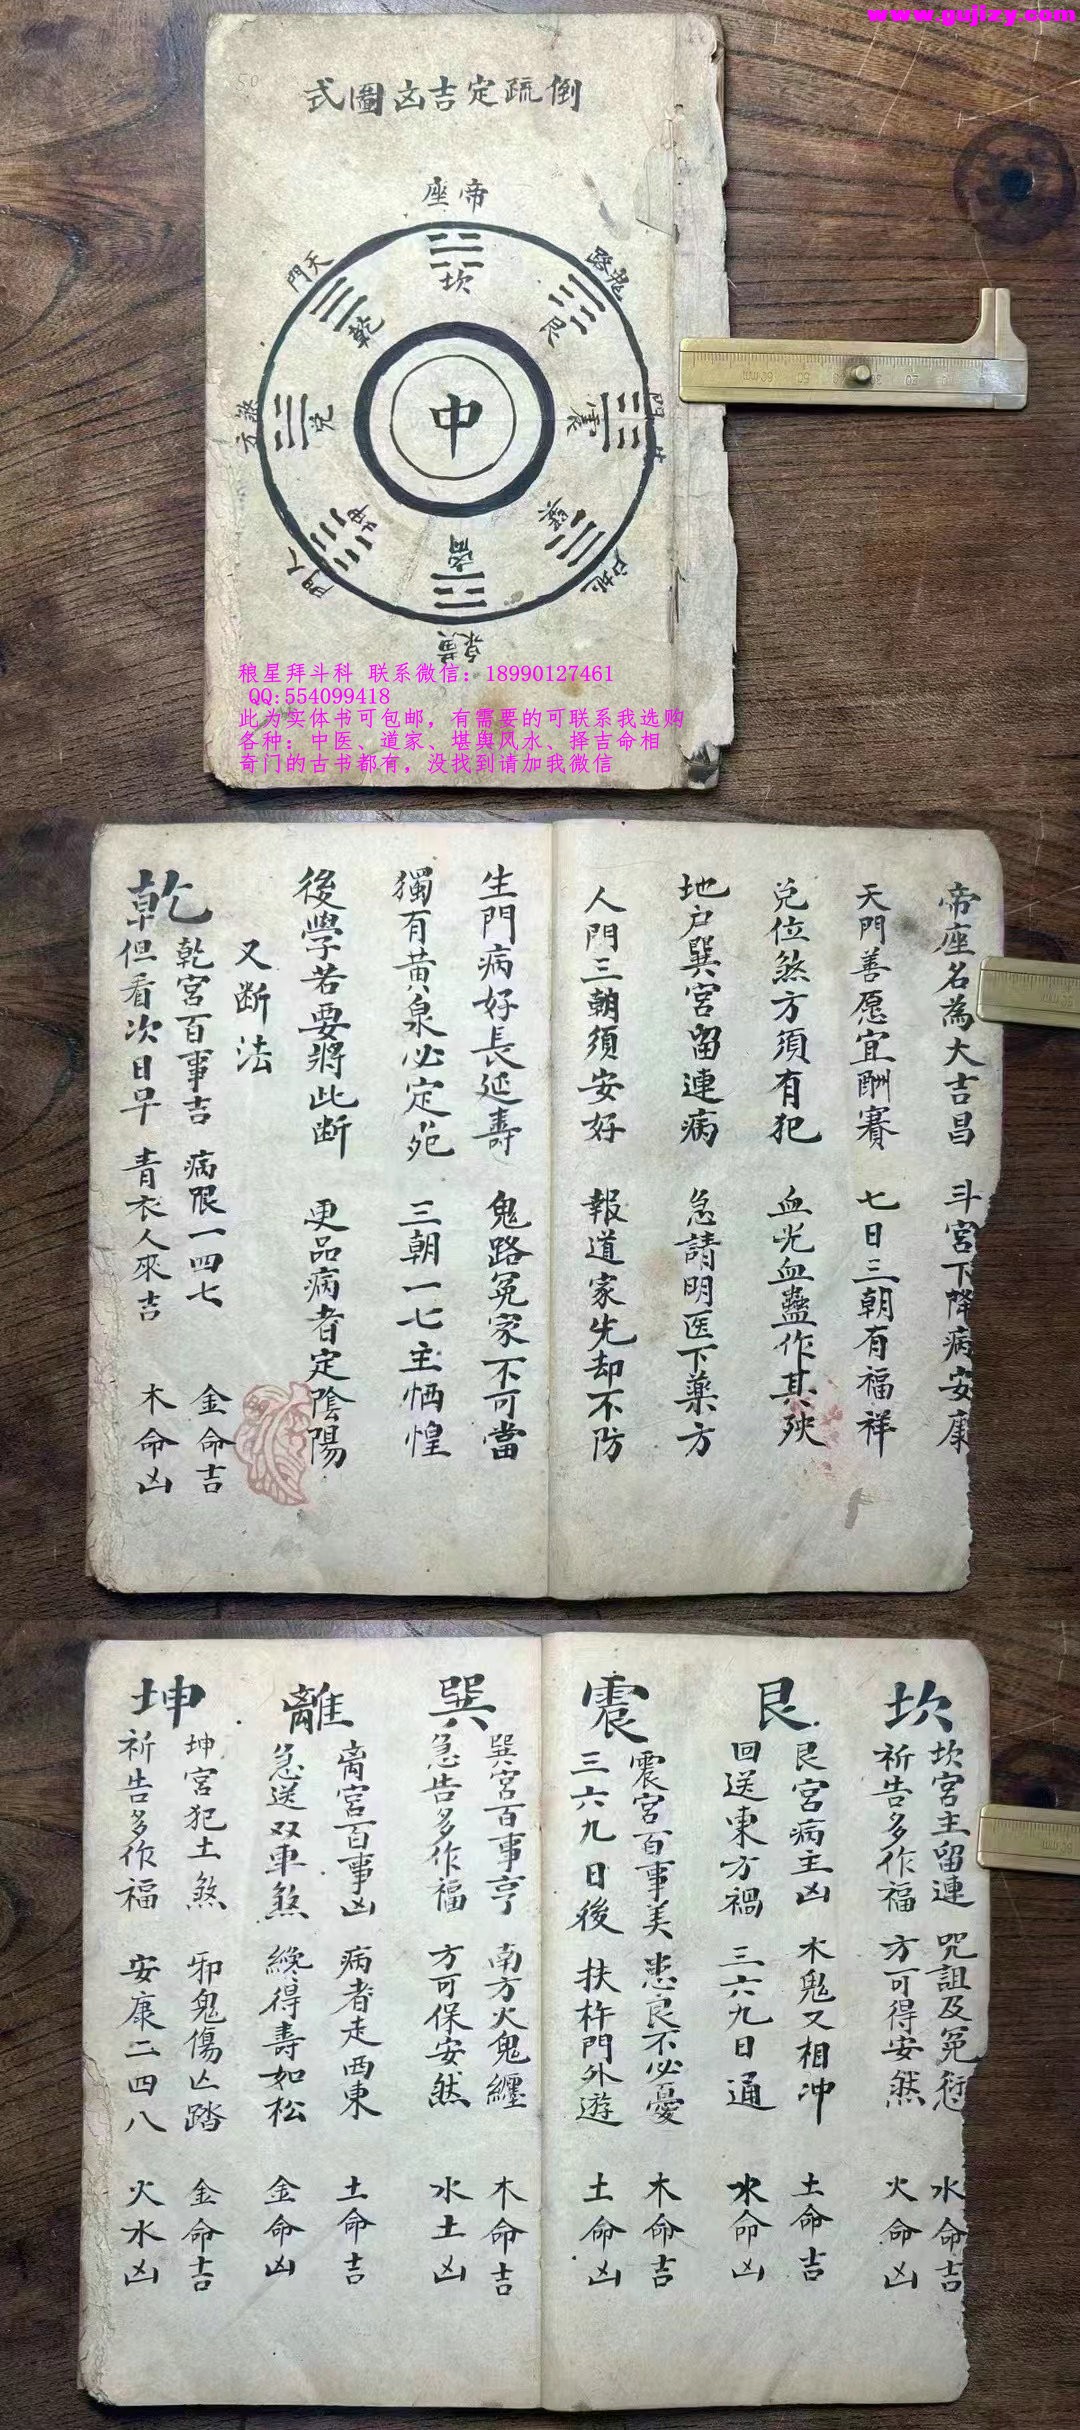 www.gujizy.com
50
倒疏定吉凶圖式
帝座
坎
鬼路
艮
天門
乾
生門
震
中
煞方
兌
巽
地戶
坤
人門
离
黃泉
稂星拜斗科 联系微信：18990127461
QQ:554099418
此为实体书可包邮，有需要的可联系我选购
各种：中医、道家、堪舆风水、择吉命相
奇门的古书都有，没找到请加我微信
帝座名為大吉昌 斗宮下降病安康
天門善愿宜酬賽 七日三朝有福祥
兌位煞方須有犯 血光血蠱作其殃
地户巽宮留連病 急請明医下藥方
人門三朝須安好 報道家先却不防
生門病好長延壽 鬼路冤家不可當
獨有黃泉必定死 三朝一七主恓惶
後學若要將此断 更品病者定陰陽
又断法
乾
乾宮百事吉 病限一四七 金命吉
但看次日早 青衣人來吉 木命凶
坎
坎宮主留連 咒詛及冤愆 水命吉
祈告多作福 方可得安然 火命凶
艮
艮宮病主凶 木鬼又相冲 土命吉
回送東方禍 三六九日通 水命凶
震
震宮百事美 患良不必憂 木命吉
三六九日後 扶杵門外遊 土命凶
巽
巽宮百事亨 南方火鬼纏 木命吉
急告多作福 方可保安然 水土凶
離
离宮百事凶 病者走西東 土命吉
急送双車煞 纔得壽如松 金命凶
坤
坤宮犯土煞 邪鬼傷亡踏 金命吉
祈告多作福 安康二四八 火水凶